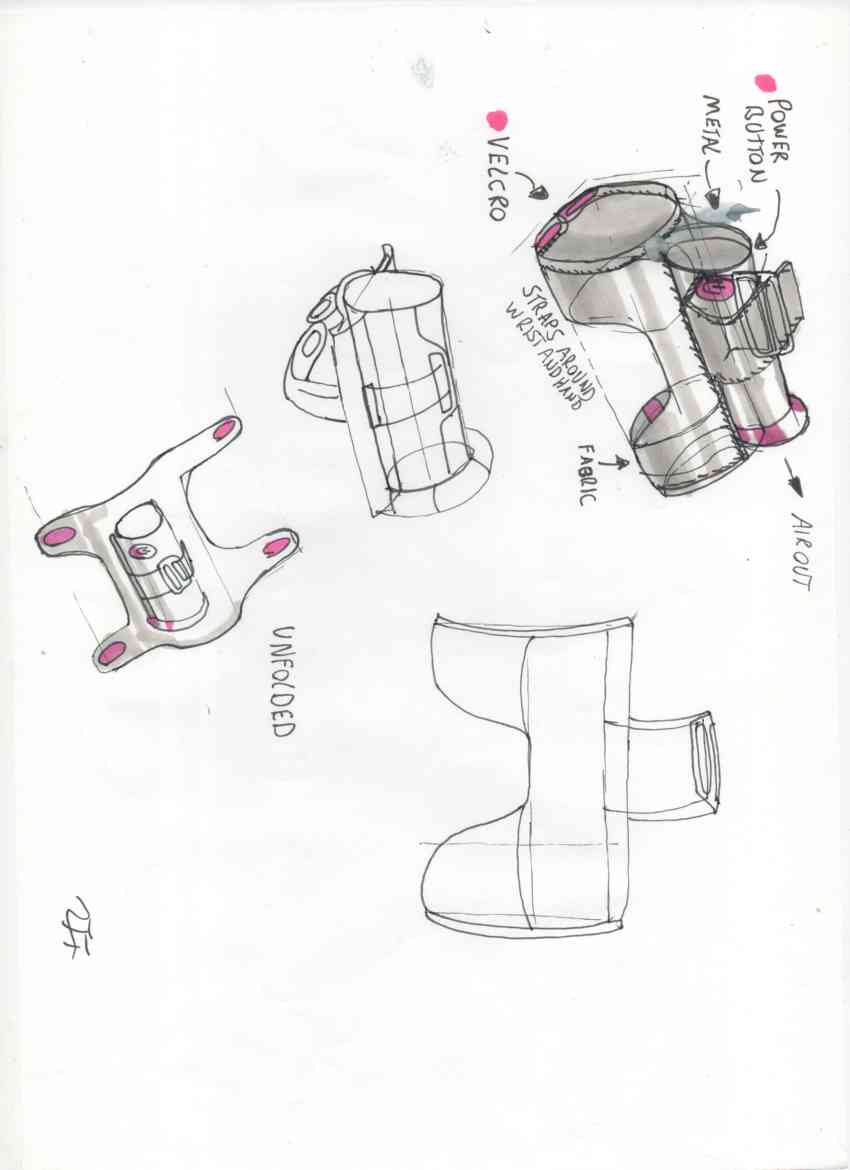 POWER
BUTTON
METAL
VELCRO
STRAPS AROUND
WRIST AND HAND
FABRIC
AIR OUT
UNFOLDED